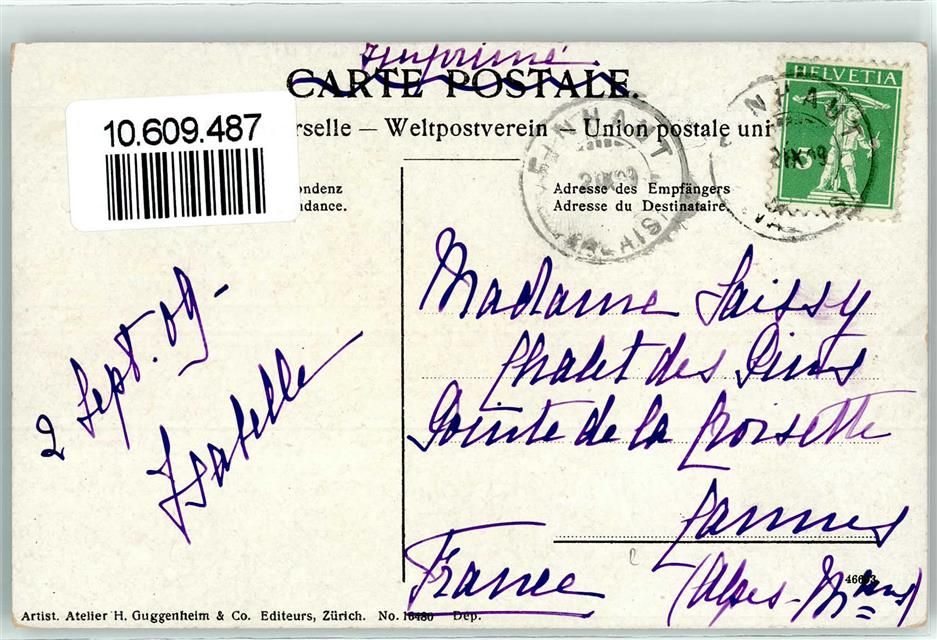 Imprimé.
CARTE POSTALE.
10.609.487
erselle — Weltpostverein — Union postale uni
HELVETIA
5
FINHAUT
2 IX 09
VALAIS
FINHAUT
2 IX 09
VALAIS
ondenz
ndance.
Adresse des Empfängers
Adresse du Destinataire.
2 Sept. 09 -
Isabelle
Madame Saissy
Chalet des Pins
Pointe de la Croisette
Cannes
France
(Alpes-Mmes)
Artist. Atelier H. Guggenheim & Co. Editeurs, Zürich. No. 10480 Dép.